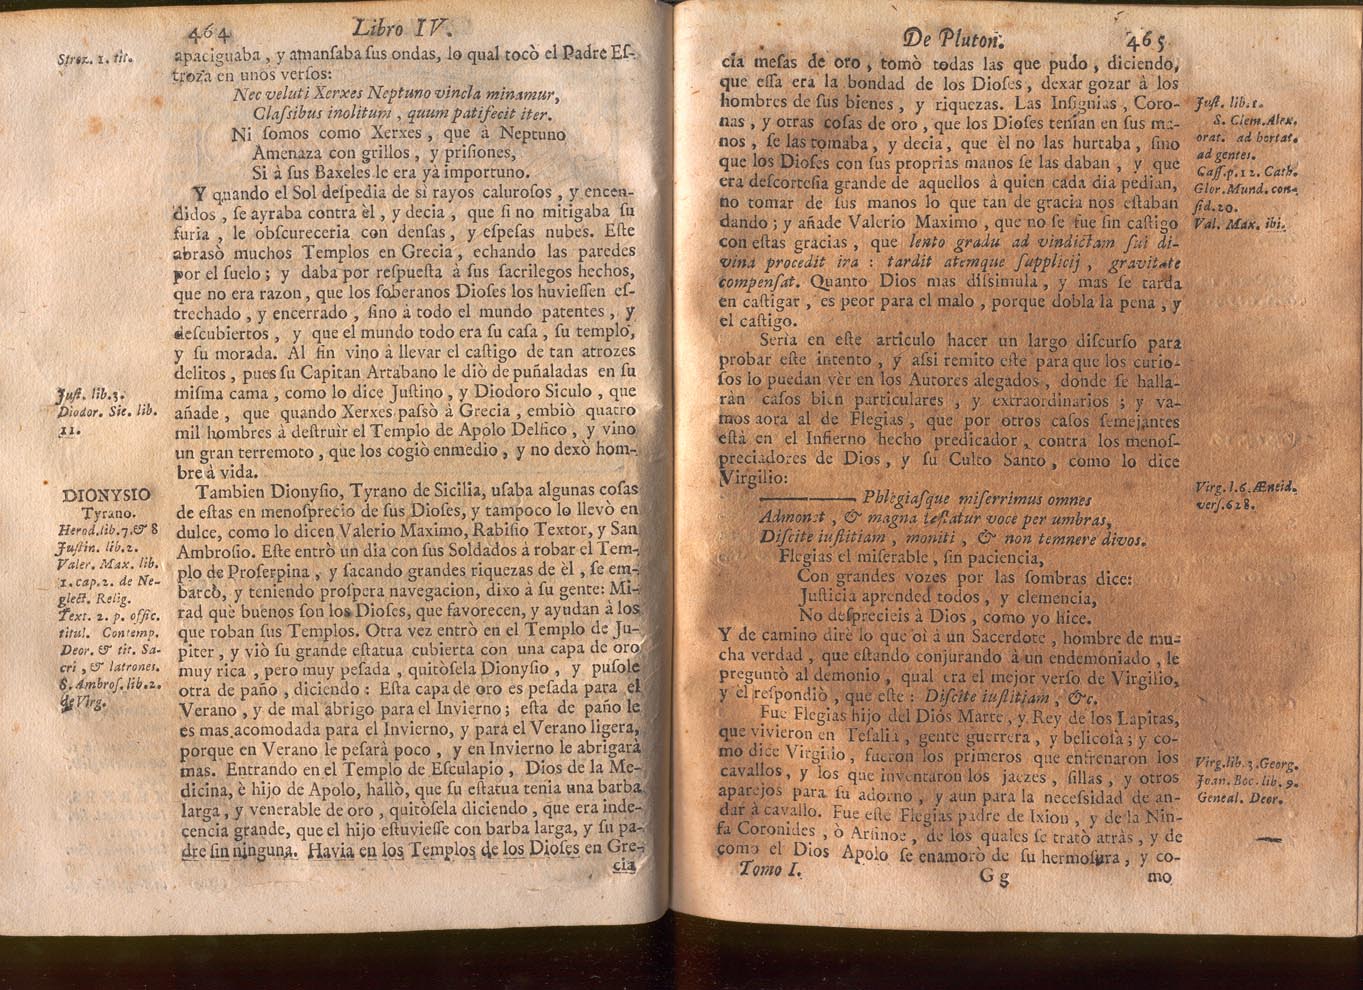 464 Libro IV.
Stroz. 1. tit.
apaciguaba , y amansaba sus ondas, lo qual tocò el Padre Es-
troza en unos versos:
Nec veluti Xerxes Neptuno vincla minamur,
Classibus inolitum , quum patifecit iter.
Ni somos como Xerxes , que à Neptuno
Amenaza con grillos , y prisiones,
Si à sus Baxeles le era yà importuno.
Y quando el Sol despedia de sì rayos calurosos , y encen-
didos , se ayraba contra èl , y decia , que si no mitigaba su
furia , le obscureceria con densas, y espesas nubes. Este
abrasò muchos Templos en Grecia , echando las paredes
por el suelo ; y daba por respuesta à sus sacrilegos hechos,
que no era razon , que los soberanos Dioses los huviessen es-
trechado , y encerrado , sino à todo el mundo patentes , y
descubiertos , y que el mundo todo era su casa , su templo,
y su morada. Al fin vino à llevar el castigo de tan atrozes
delitos , pues su Capitan Artabano le diò de puñaladas en su
misma cama , como lo dice Justino , y Diodoro Siculo , que
añade , que quando Xerxes passò à Grecia , embiò quatro
mil hombres à destruir el Templo de Apolo Delfico , y vino
un gran terremoto , que los cogiò enmedio , y no dexò hom-
bre à vida.
Just. lib.3.
Diodor. Sic. lib.
11.
Tambien Dionysio, Tyrano de Sicilia, usaba algunas cosas
de estas en menosprecio de sus Dioses, y tampoco lo llevò en
dulce, como lo dicen Valerio Maximo, Rabisio Textor, y San
Ambrosio. Este entrò un dia con sus Soldados à robar el Tem-
plo de Proserpina , y sacando grandes riquezas de èl , se em-
barcò, y teniendo prospera navegacion, dixo à su gente: Mi-
rad què buenos son los Dioses, que favorecen, y ayudan à los
que roban sus Templos. Otra vez entrò en el Templo de Ju-
piter , y viò su grande estatua cubierta con una capa de oro
muy rica , pero muy pesada , quitòsela Dionysio , y pusole
otra de paño , diciendo : Esta capa de oro es pesada para el
Verano , y de mal abrigo para el Invierno ; esta de paño le
es mas acomodada para el Invierno, y para el Verano ligera,
porque en Verano le pesarà poco , y en Invierno le abrigarà
mas. Entrando en el Templo de Esculapio , Dios de la Me-
dicina, è hijo de Apolo, hallò, que su estatua tenia una barba
larga , y venerable de oro , quitòsela diciendo , que era inde-
cencia grande, que el hijo estuviesse con barba larga, y su pa-
dre sin ninguna. Havia en los Templos de los Dioses en Gre-
cia
DIONYSIO
Tyrano.
Herod.lib.7.& 8
Justin. lib.2.
Valer. Max. lib.
1. cap.2. de Ne-
glect. Relig.
Text. 2. p. offic.
titul. Contemp.
Deor. & tit. Sa-
cri , & latrones.
S. Ambros. lib.2.
de Virg.
De Pluton. 465
cia mesas de oro , tomò todas las que pudo , diciendo,
que essa era la bondad de los Dioses, dexar gozar à los
hombres de sus bienes , y riquezas. Las Insignias , Coro-
nas , y otras cosas de oro , que los Dioses tenian en sus ma-
nos , se las tomaba, y decia, que èl no las hurtaba, sino
que los Dioses con sus proprias manos se las daban , y que
era descortesia grande de aquellos à quien cada dia pedian,
no tomar de sus manos lo que tan de gracia nos estaban
dando ; y añade Valerio Maximo , que no se fue sin castigo
con estas gracias, que lento gradu ad vindictam sui di-
vina procedit ira : tardit atemque supplicij , gravitate
compensat. Quanto Dios mas dissimula, y mas se tarda
en castigar , es peor para el malo , porque dobla la pena , y
el castigo.
Just. lib.1.
S. Clem. Alex.
orat. ad hortat.
ad gentes.
Cass. p. 12. Cath.
Glor. Mund. con-
sid. 20.
Val. Max. ibi.
Seria en este articulo hacer un largo discurso para
probar este intento , y assi remito este para que los curio-
sos lo puedan vèr en los Autores alegados , donde se halla-
ràn casos bien particulares , y extraordinarios ; y va-
mos aora al de Flegias , que por otros casos semejantes
està en el Infierno hecho predicador , contra los menos-
preciadores de Dios , y su Culto Santo , como lo dice
Virgilio:
Phlegiasque miserrimus omnes
Admonet , & magna testatur voce per umbras,
Discite iustitiam , moniti , & non temnere divos.
Virg. l. 6. Æneid.
vers. 628.
Flegias el miserable , sin paciencia,
Con grandes vozes por las sombras dice:
Justicia aprended todos , y clemencia,
No desprecieis à Dios , como yo hice.
Y de camino dirè lo que oì à un Sacerdote , hombre de mu-
cha verdad , que estando conjurando à un endemoniado , le
preguntò al demonio , qual era el mejor verso de Virgilio,
y el respondiò , que este : Discite iustitiam , &c.
Fue Flegias hijo del Dios Marte , y Rey de los Lapitas,
que vivieron en Tesalia , gente guerrera , y belicosa ; y co-
mo dice Virgilio , fueron los primeros que enfrenaron los
cavallos , y los que inventaron los jaezes , sillas , y otros
aparejos para su adorno , y aun para la necessidad de an-
dar à cavallo. Fue este Flegias padre de Ixion , y de la Nin-
fa Coronides , ò Arsinoe , de los quales se tratò atràs , y de
como el Dios Apolo se enamorò de su hermosura , y co-
Virg. lib. 3. Georg.
Joan. Boc. lib. 9.
Geneal. Deor.
Tomo I. Gg mo